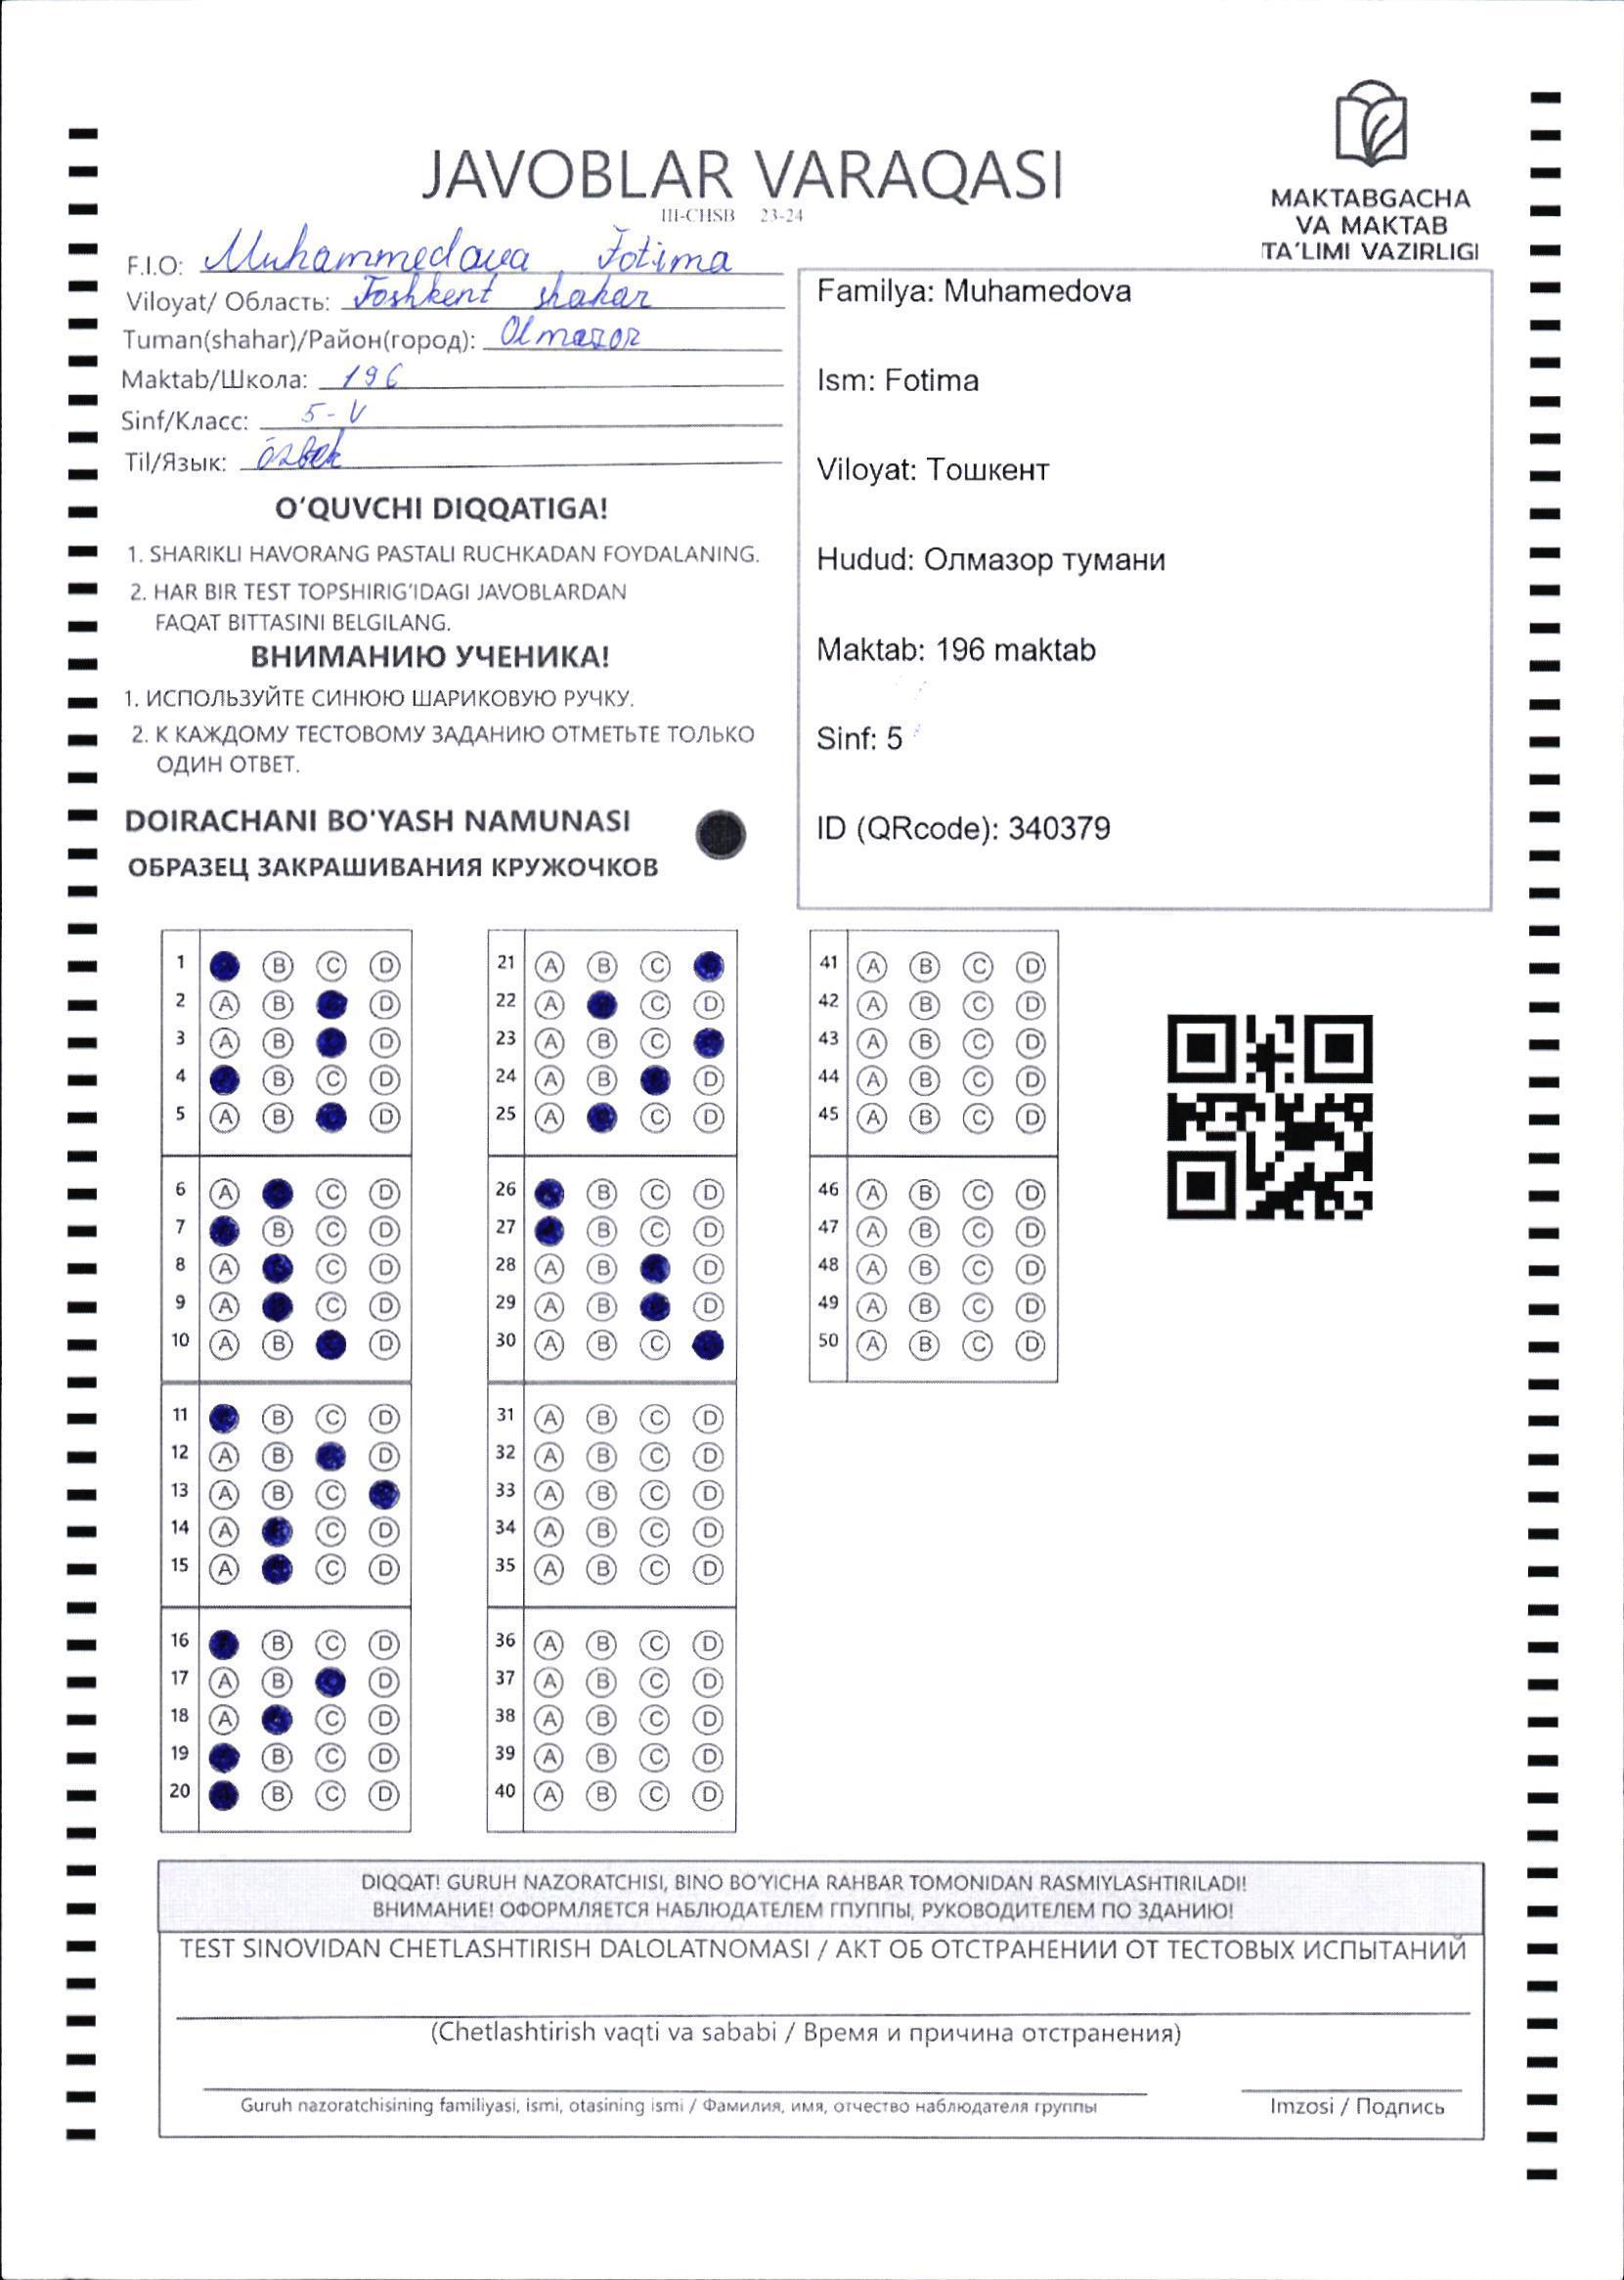 JAVOBLAR VARAQASI
III-CHSB 23-24
MAKTABGACHA
VA MAKTAB
TA'LIMI VAZIRLIGI
F.I.O: Muhammedova Fotima
Viloyat/ Область: Toshkent shahar
Tuman(shahar)/Район(город): Olmazor
Maktab/Школа: 196
Sinf/Класс: 5-V
Til/Язык: özbek
O'QUVCHI DIQQATIGA!
1. SHARIKLI HAVORANG PASTALI RUCHKADAN FOYDALANING.
2. HAR BIR TEST TOPSHIRIG'IDAGI JAVOBLARDAN
FAQAT BITTASINI BELGILANG.
ВНИМАНИЮ УЧЕНИКА!
1. ИСПОЛЬЗУЙТЕ СИНЮЮ ШАРИКОВУЮ РУЧКУ.
2. К КАЖДОМУ ТЕСТОВОМУ ЗАДАНИЮ ОТМЕТЬТЕ ТОЛЬКО
ОДИН ОТВЕТ.
DOIRACHANI BO'YASH NAMUNASI
ОБРАЗЕЦ ЗАКРАШИВАНИЯ КРУЖОЧКОВ
Familya: Muhamedova
Ism: Fotima
Viloyat: Тошкент
Hudud: Олмазор тумани
Maktab: 196 maktab
Sinf: 5
ID (QRcode): 340379
1 B C D
2 A B D
3 A B D
4 B C D
5 A B D
6 A C D
7 B C D
8 A C D
9 A C D
10 A B D
11 B C D
12 A B D
13 A B C
14 A C D
15 A C D
16 B C D
17 A B D
18 A C D
19 B C D
20 B C D
21 A B C
22 A C D
23 A B C
24 A B D
25 A C D
26 B C D
27 B C D
28 A B D
29 A B D
30 A B C
31 A B C D
32 A B C D
33 A B C D
34 A B C D
35 A B C D
36 A B C D
37 A B C D
38 A B C D
39 A B C D
40 A B C D
41 A B C D
42 A B C D
43 A B C D
44 A B C D
45 A B C D
46 A B C D
47 A B C D
48 A B C D
49 A B C D
50 A B C D
DIQQAT! GURUH NAZORATCHISI, BINO BO'YICHA RAHBAR TOMONIDAN RASMIYLASHTIRILADI!
ВНИМАНИЕ! ОФОРМЛЯЕТСЯ НАБЛЮДАТЕЛЕМ ГПУППЫ, РУКОВОДИТЕЛЕМ ПО ЗДАНИЮ!
TEST SINOVIDAN CHETLASHTIRISH DALOLATNOMASI / АКТ ОБ ОТСТРАНЕНИИ ОТ ТЕСТОВЫХ ИСПЫТАНИЙ
(Chetlashtirish vaqti va sababi / Время и причина отстранения)
Guruh nazoratchisining familiyasi, ismi, otasining ismi / Фамилия, имя, отчество наблюдателя группы
Imzosi / Подпись